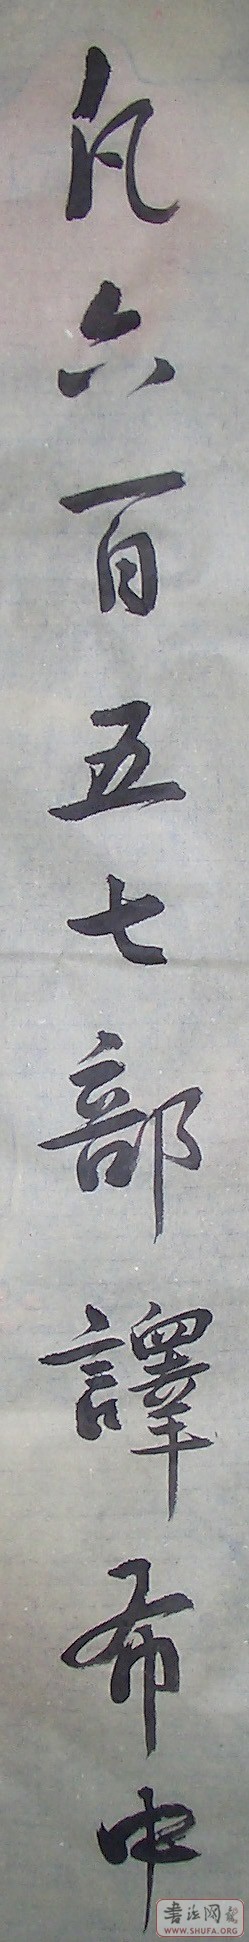 凡六百五七部譯布中
书法网
WWW.SHUFA.ORG